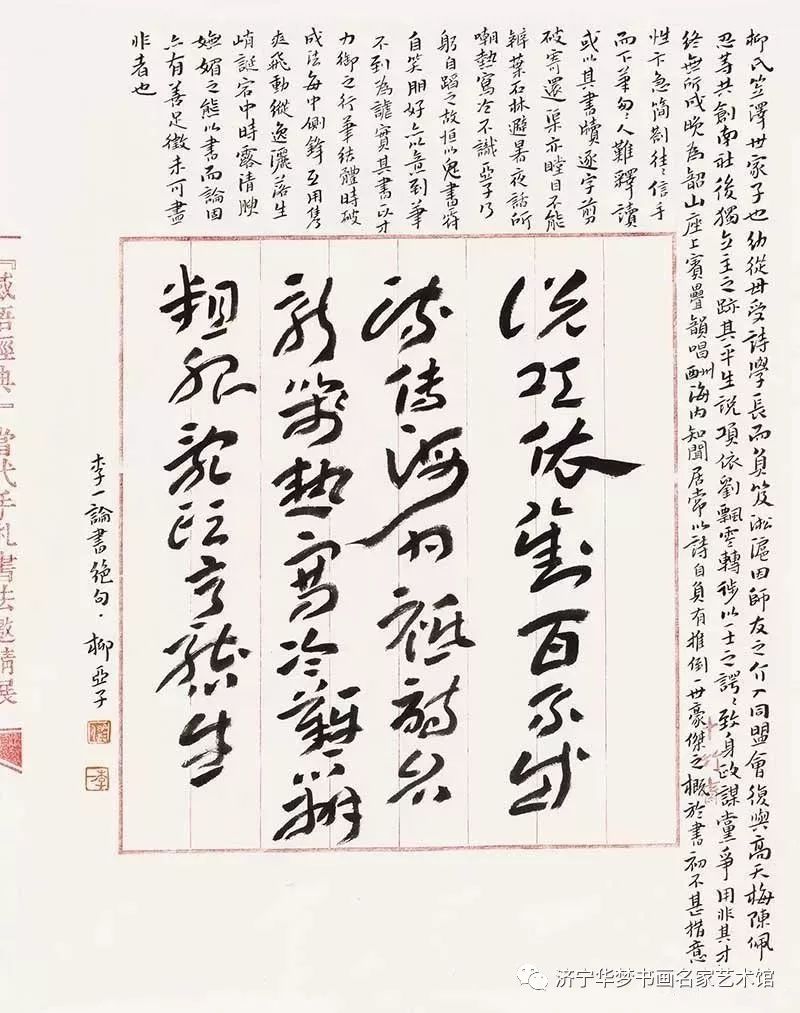 柳氏笠澤世家子也幼從母受詩學長而負笈淞滬因師友之介入同盟會復與高天梅陳佩
忍等共創南社後獨立主之跡其平生說項依劉飄零轉徙以一士之諤諤致身政謀黨爭用非其才
終無所成晚為韶山座上賓疊韻唱酬海內知聞居常以詩自負有推倒一世豪傑之概於書初不甚措意
性卞急簡劄往往信手
而下筆勾勾人難釋讀
或以其書牘逐字剪
破寄還渠亦瞠目不能
辨葉石林避暑夜話所
嘲熱寫冷不識亞子乃
躬自蹈之故恒以鬼書符
自笑朋好亦以意到筆
不到為謔實其書以才
力御之行筆結體時破
成法每中側鋒互用雋
爽飛動縱逸灑落生
峭誕宕中時露清腴
嫵媚之態以書而論固
亦有善足徵未可盡
非者也
說項依劉百不成
流傳海內祗詩名
箋熱寫冷難辨
粗服亂頭態生
李一論書絕句·柳亞子
李
『感悟經典』當代手札書法邀請展
济宁华梦书画名家艺术馆